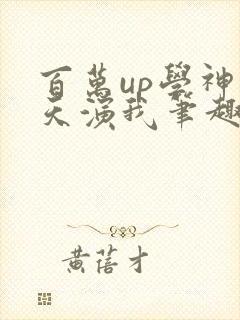 百萬up學神
天演我筆趣
黃蓓才